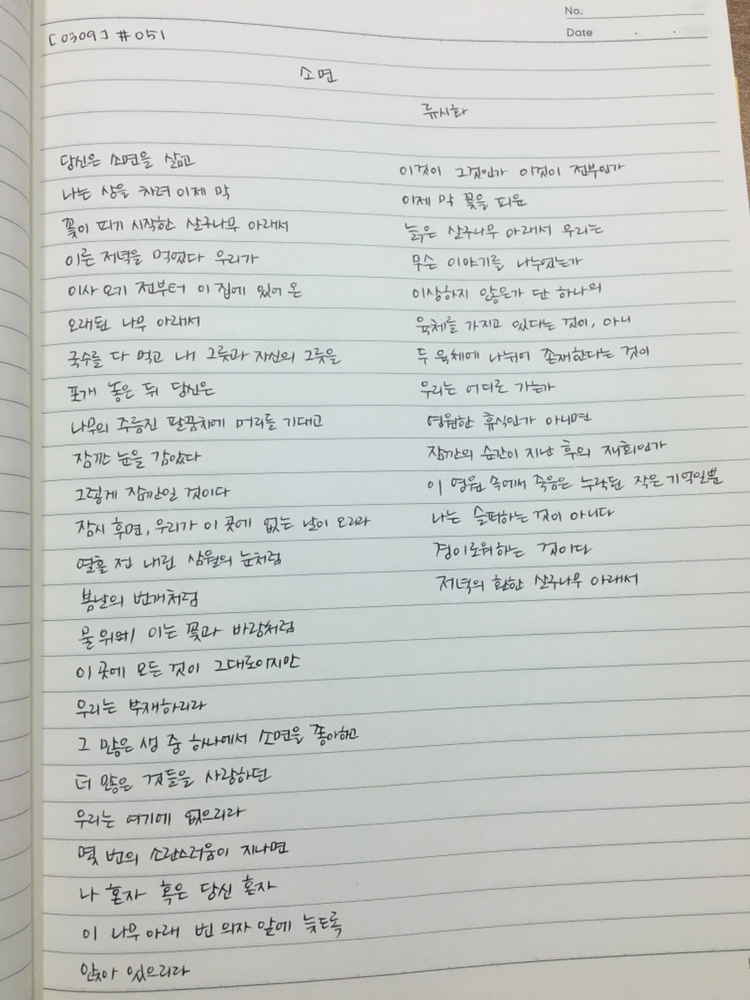 No.
Date . .
[0309] #051
소면
류시화
당신은 소면을 삶고
나는 상을 차려 이제 막
꽃이 피기 시작한 살구나무 아래서
이른 저녁을 먹었다 우리가
이사 오기 전부터 이 집에 있어 온
오래된 나무 아래서
국수를 다 먹고 내 그릇과 자신의 그릇을
포개 놓은 뒤 당신은
나무의 주름진 팔꿈치에 머리를 기대고
잠깐 눈을 감았다
그렇게 잠깐일 것이다
잠시 후면, 우리가 이 곳에 없는 날이 오리라
열흘 전 내린 삼월의 눈처럼
봄날의 번개처럼
물 위에 이는 꽃과 바람처럼
이 곳에 모든 것이 그대로이지만
우리는 부재하리라
그 많은 생 중 하나에서 소면을 좋아하고
더 많은 것들을 사랑하던
우리는 여기에 없으리라
몇 번의 소란스러움이 지나면
나 혼자 혹은 당신 혼자
이 나무 아래 빈 의자 앞에 늦도록
앉아 있으리라
이것이 그것인가 이것이 전부인가
이제 막 꽃을 피운
늙은 살구나무 아래서 우리는
무슨 이야기를 나누었는가
이상하지 않은가 단 하나의
육체를 가지고 있다는 것이, 아니
두 육체에 나뉘어 존재한다는 것이
우리는 어디로 가는가
영원한 휴식인가 아니면
잠깐의 순간이 지난 후의 재회인가
이 영원 속에서 죽음은 누락된 작은 기억일뿐
나는 슬퍼하는 것이 아니다
경이로워하는 것이다
저녁의 환한 살구나무 아래서